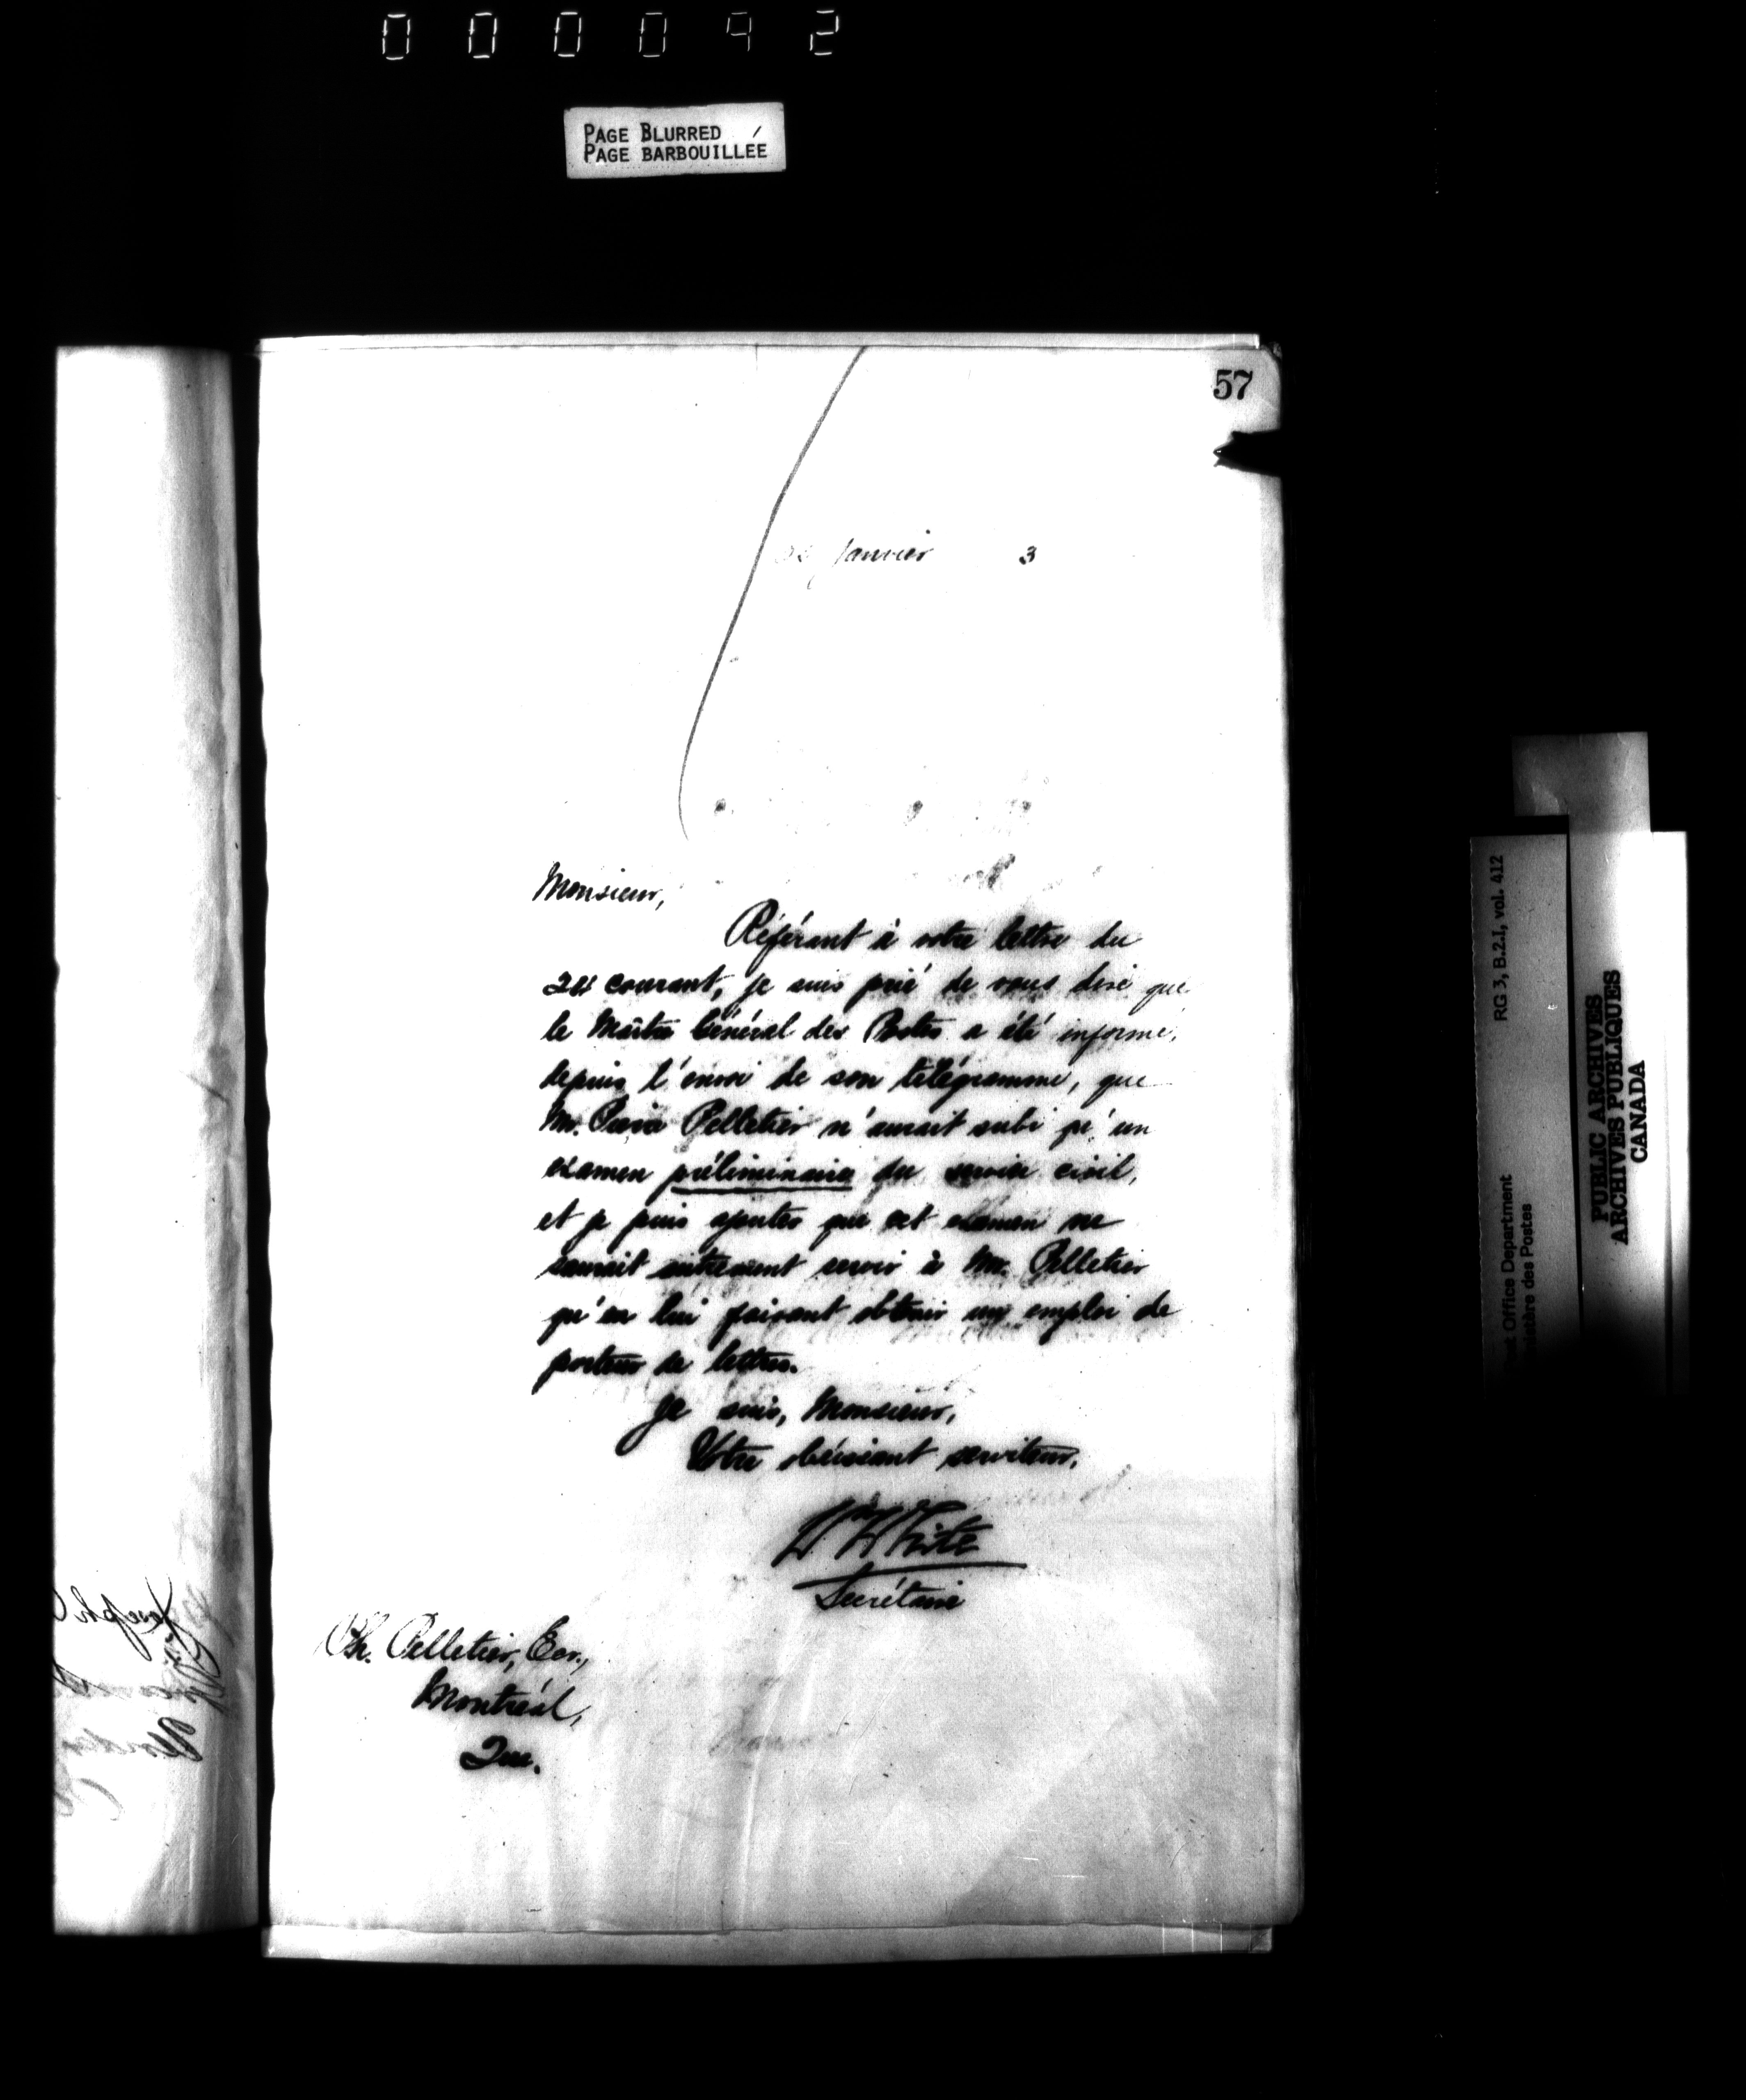 000092
PAGE BLURRED
PAGE BARBOUILLÉE
57
Janvier 3
Monsieur,
Référant à votre lettre du
courant, je suis prié de vous dire que
le Maître Général des Postes a été informé,
depuis l'envoi de son télégramme, que
Mr. Pelletier n'aurait subi qu'un
examen préliminaire du service civil,
et je puis ajouter que cet examen ne
saurait autrement servir à Mr. Pelletier
qu'en lui faisant obtenir un emploi de
porteur de lettres.
Je suis, Monsieur,
Votre obéissant serviteur,
Wm White
Secrétaire
Ch. Pelletier, Ecr.,
Montréal,
Que.
Joseph
RG 3, B.2.I, vol. 412
Office Department
des Postes
PUBLIC ARCHIVES
ARCHIVES PUBLIQUES
CANADA